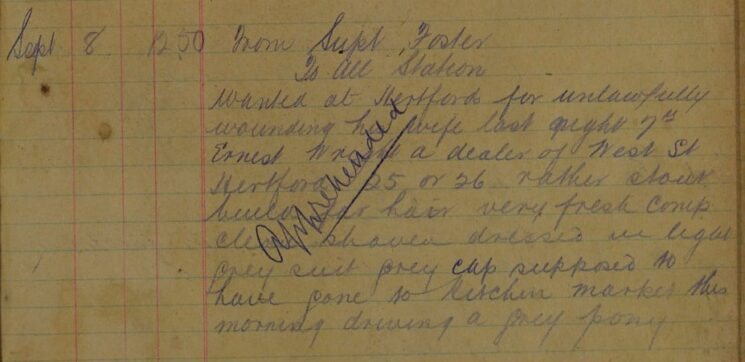 Sept 8 12.50 From Supt Foster
To All Station
Wanted at Hertford for unlawfully
wounding his wife last night 7th
Ernest a dealer of West St
Hertford 25 or 26 rather stout
build hair very fresh comp
clean shaven dressed in light
grey suit grey cap supposed to
have gone to Hitchin market this
morning driving a grey pony
Apprehended